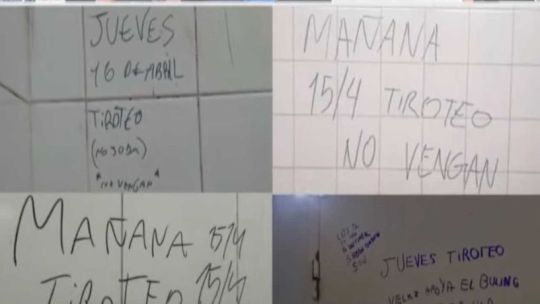 JUEVES
16 DE ABRIL
TIROTEO
(NO JODA)
"NO VENGAN"
MAÑANA
15/4 TIROTEO
NO VENGAN
MAÑANA 15/4
TIROTEO 15/4
JUEVES TIROTEO
APOYA EL BULING